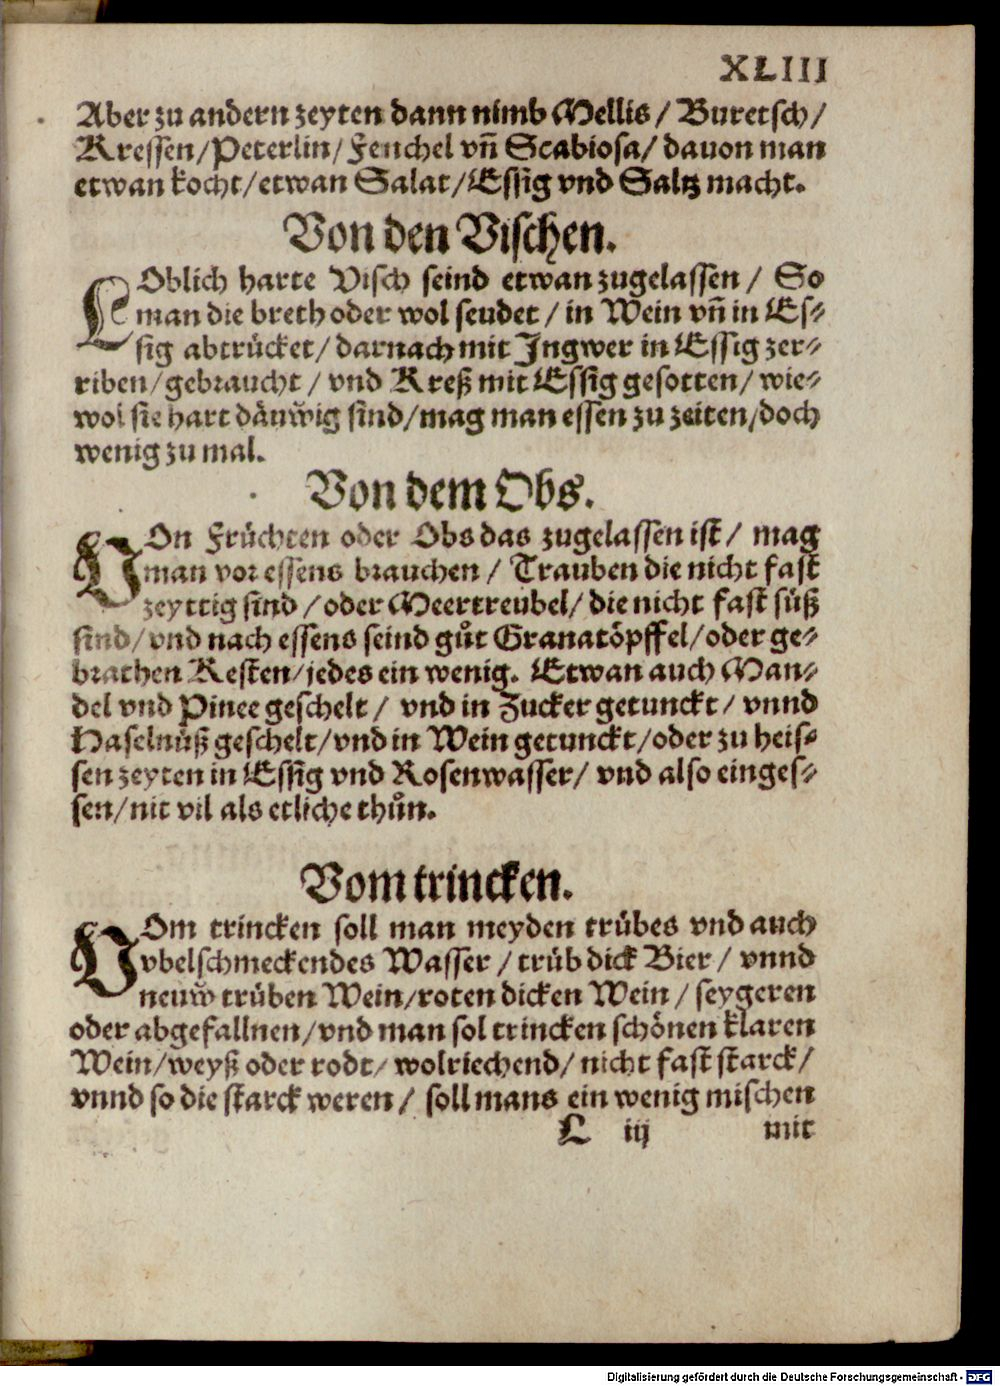 XLIII
Aber zu andern zeyten dann nimb Mellis / Buretsch /
Kressen / Peterlin / Fenchel vñ Scabiosa / dauon man
etwan kocht / etwan Salat / Essig vnd Saltz macht.
Von den Vischen.
LOblich harte Visch seind etwan zugelassen / So
man die breth oder wol seudet / in Wein vñ in Es⸗
sig abtrücket / darnach mit Ingwer in Essig zer⸗
riben / gebraucht / vnd Kreß mit Essig gesotten / wie⸗
wol sie hart däuwig sind / mag man essen zu zeiten / doch
wenig zu mal.
Von dem Obs.
VOn Früchten oder Obs das zugelassen ist / mag
man vor essens brauchen / Trauben die nicht fast
zeyttig sind / oder Meertreubel / die nicht fast süß
sind / vnd nach essens seind gůt Granatöpffel / oder ge⸗
brathen Kesten / jedes ein wenig. Etwan auch Man⸗
del vnd Pinee geschelt / vnd in Zucker getunckt / vnnd
Haselnüß geschelt / vnd in Wein getunckt / oder zu heis⸗
sen zeyten in Essig vnd Rosenwasser / vnd also einges⸗
sen / nit vil als etliche thůn.
Vom trincken.
VOm trincken soll man meyden trübes vnd auch
vbelschmeckendes Wasser / trüb dick Bier / vnnd
neuw trüben Wein / roten dicken Wein / seygeren
oder abgefallnen / vnd man sol trincken schönen klaren
Wein / weyß oder rodt / wolriechend / nicht fast starck /
vnnd so die starck weren / soll mans ein wenig mischen
L iij mit
Digitalisierung gefördert durch die Deutsche Forschungsgemeinschaft - DFG